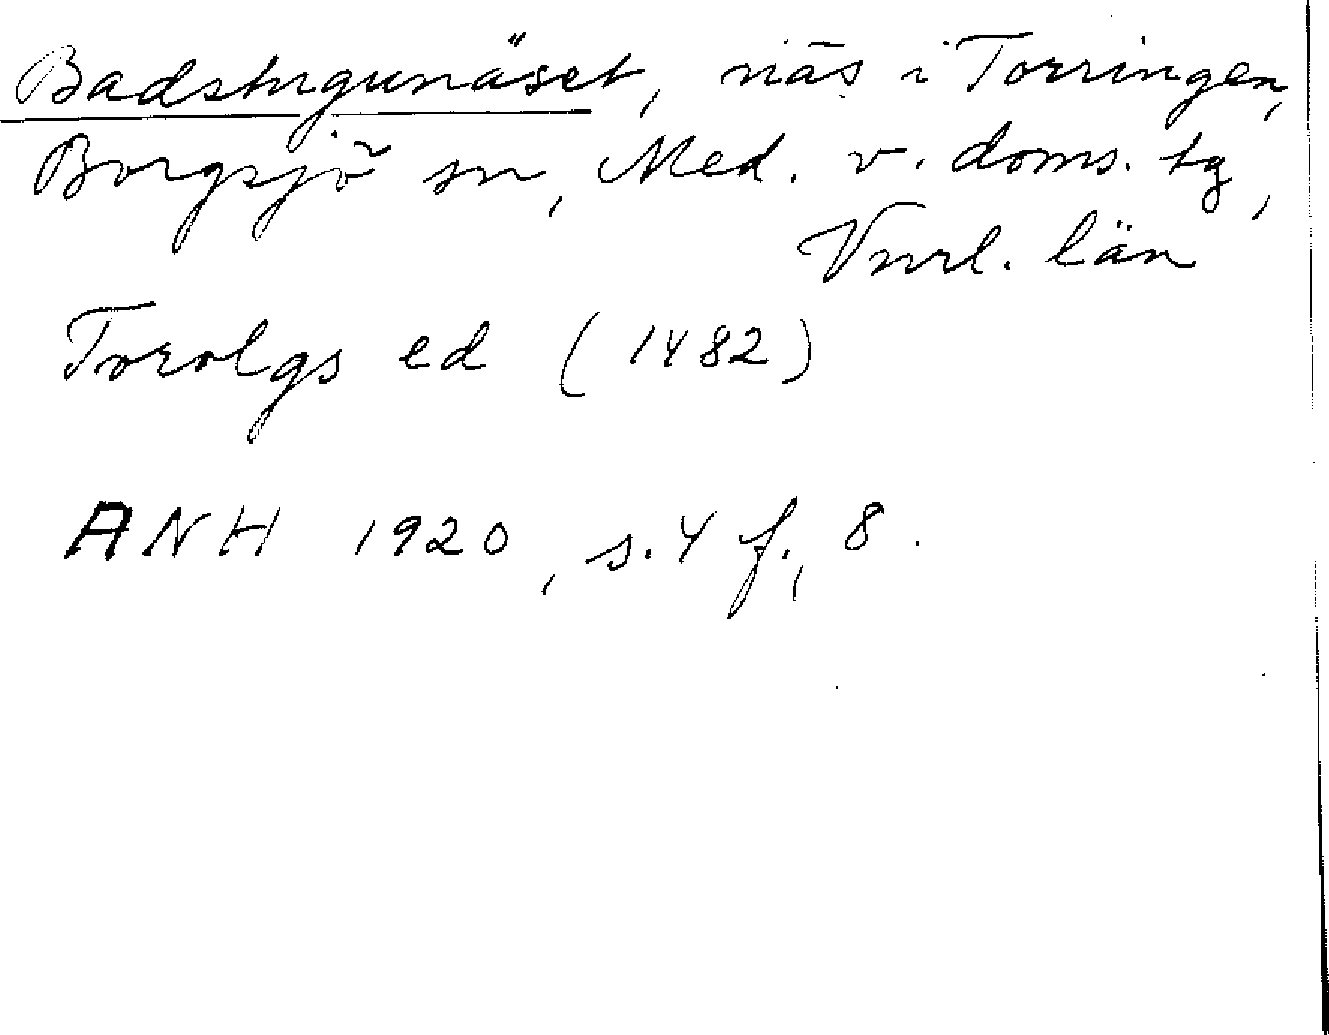 Badstugunäset, näs i Torringen,
Borgsjö sn, Med. v. doms. tg,
Vnrl. län
Torolgs ed (1482)
ANH 1920, s. 4 f., 8.